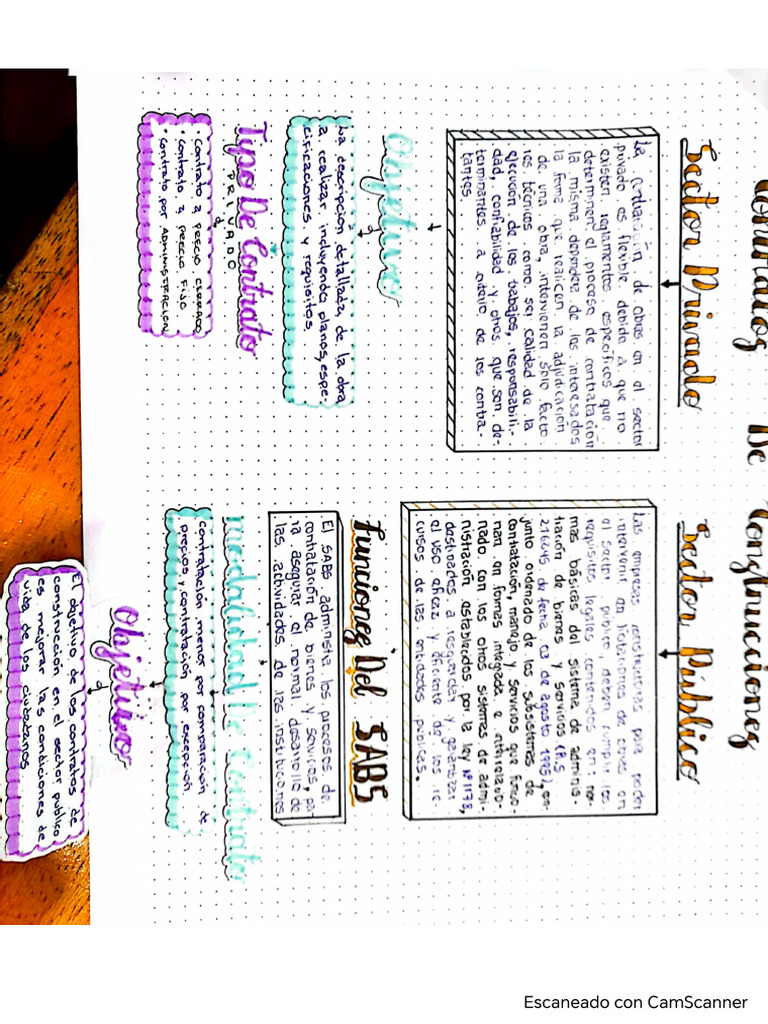 Contratos De Construcciones
Sector Privado
La contratación de obras en el sector
privado es flexible debido a que no
existen reglamentos específicos que
determinen el proceso de contratación
la misma depende de los interesados
la forma que realicen la adjudicación
de una obra, intervienen solo facto
res técnicos como ser calidad de la
ejecución de los trabajos, responsabili-
dad, confiabilidad y otros que son de-
terminantes a criterio de los contra-
tantes.
Objetivo
La descripción detallada de la obra
a realizar incluyendo planos, espe-
cificaciones y requisitos.
Tipo De Contrato
PRIVADO
• contrato a precio cerrado
• contrato a precio fijo
• contrato por ADMINISTRACION
Sector Público
Las empresas constructoras para poder
intervenir en licitaciones de obras en
el sector público, deben cumplir los
requisitos legales contenidos en: nor
mas básicas del sistema de adminis-
tración de bienes y servicios
21645 de fecha 03 de agosto 1995, con
junto ordenado de los subsistemas de
contratación, manejo y servicios que funcio-
nan en formas integrada e interrelacio-
nado, con los otros sistemas de admi-
nistración establecidos por la ley Nº1178,
destinados a responder y garantizar
el uso eficaz y eficiente de los re-
cursos de las entidades publicas.
Funciones Del SABS
El SABS administra los procesos de
contratación de bienes y servicios, pa
ra asegurar el normal desarrollo de
las actividades de las instituciones
modalidad De Contrato
contratación menor por comparación de
precios y contratación por excepción
Objetivo
El objetivo de los contratos de
construcción en el sector publico
es mejorar las condiciones de
vida de los ciudadanos.
Escaneado con CamScanner